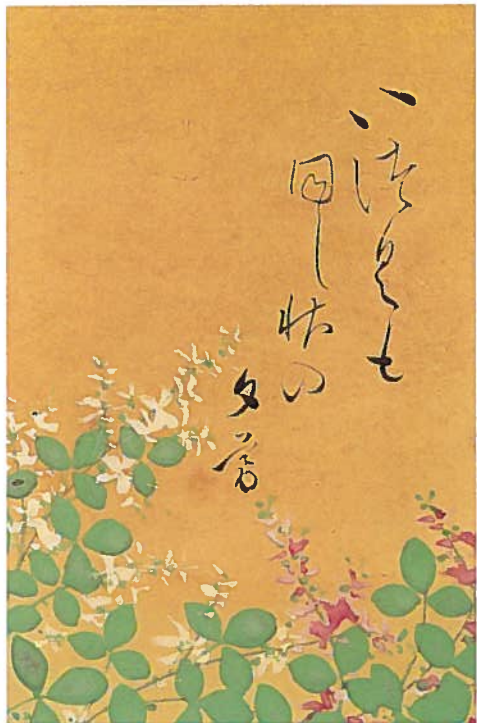 いつくも
同し秋の
夕暮